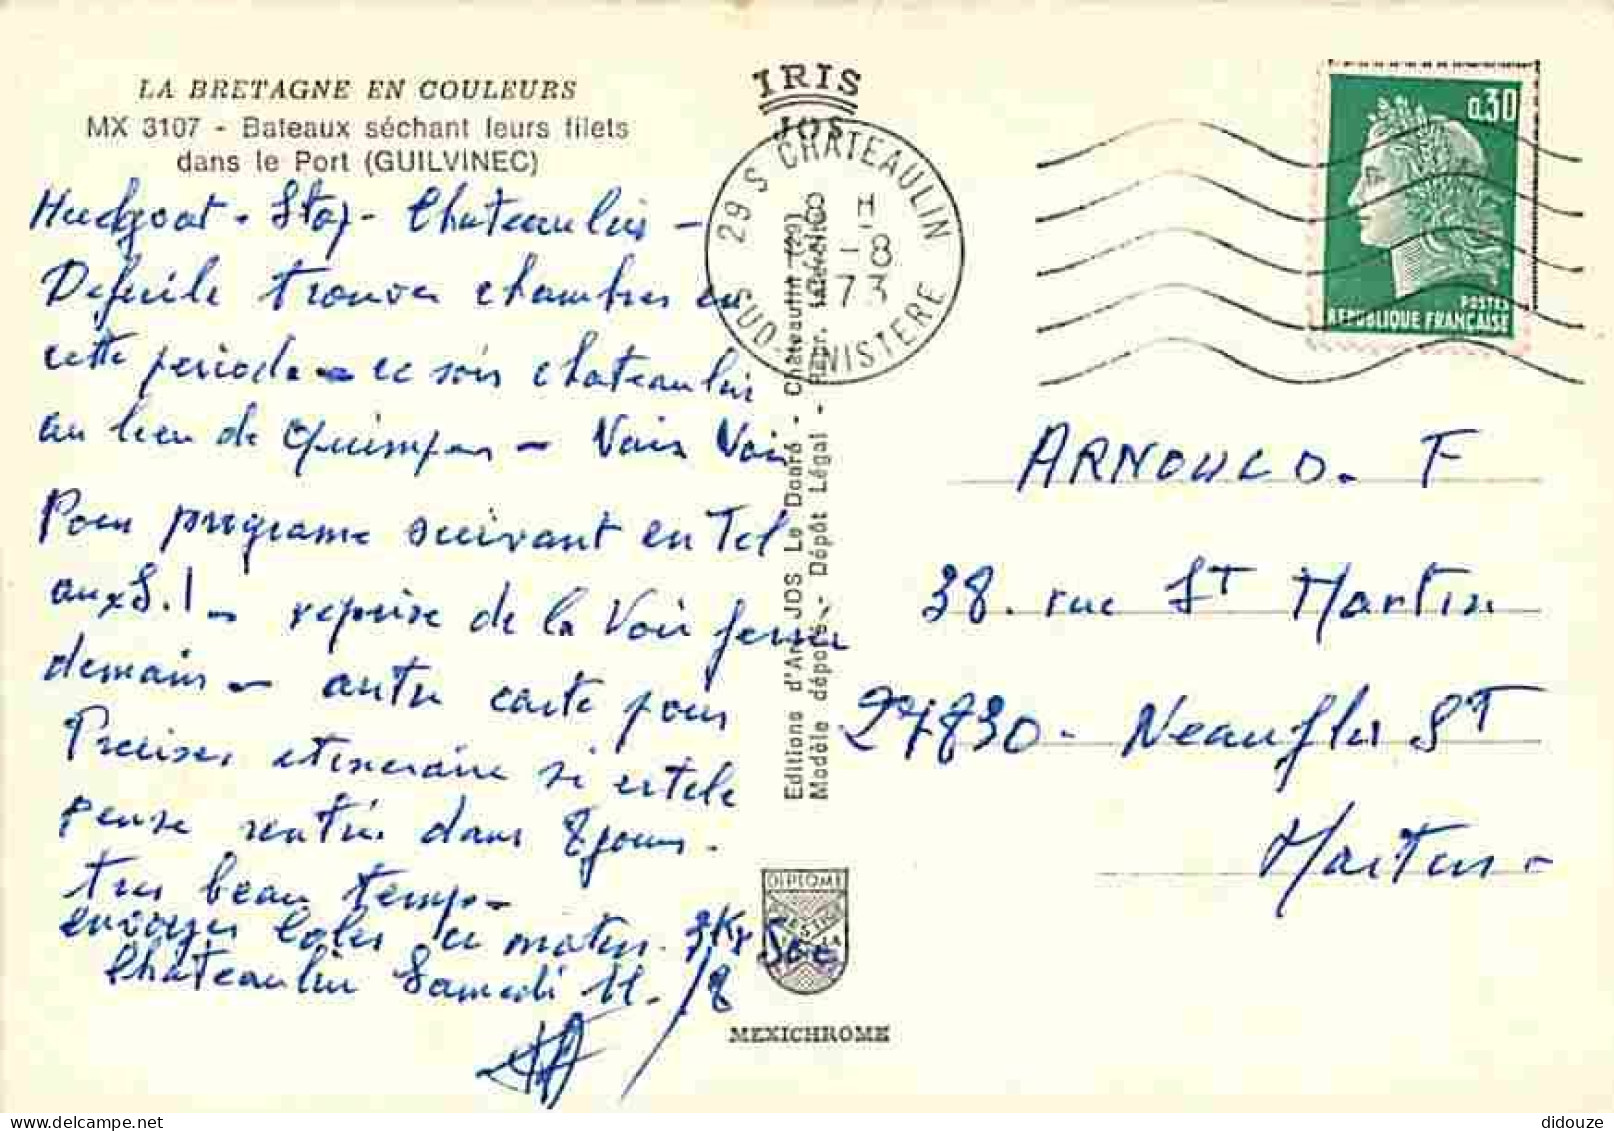 LA BRETAGNE EN COULEURS
MX 3107 - Bateaux séchant leurs filets
dans le Port (GUILVINEC)
IRIS
JOS
29 S CHATEAULIN
H
-8
73
SUD-FINISTERE
0,30
POSTES
REPUBLIQUE FRANÇAISE
Huelgoat - Stop - Chateaulin -
Deficile trouver chambres en
cette periode - ce soir chateaulin
au lieu de Quimper - Vais Voir
Pour programe suivant en Tel
aux S.! - reprise de la Voie
demain - autre carte pour
Preciser itineraire si
pense rentrer dans 8 jours.
tres beau temps -
envoyer colis ce matin. 3Kg 500
Chateaulin Samedi 11./8
ARNOULD. F
38. rue St Martin
27830 - Neaufles St
Martin -
Editions d'Art JOS Le Doaré - Châteaulin (29)
Modèle déposé - Dépôt Légal - Repr. interdite
DIPLOME
PRESTIGE
MEXICHROME
didouze